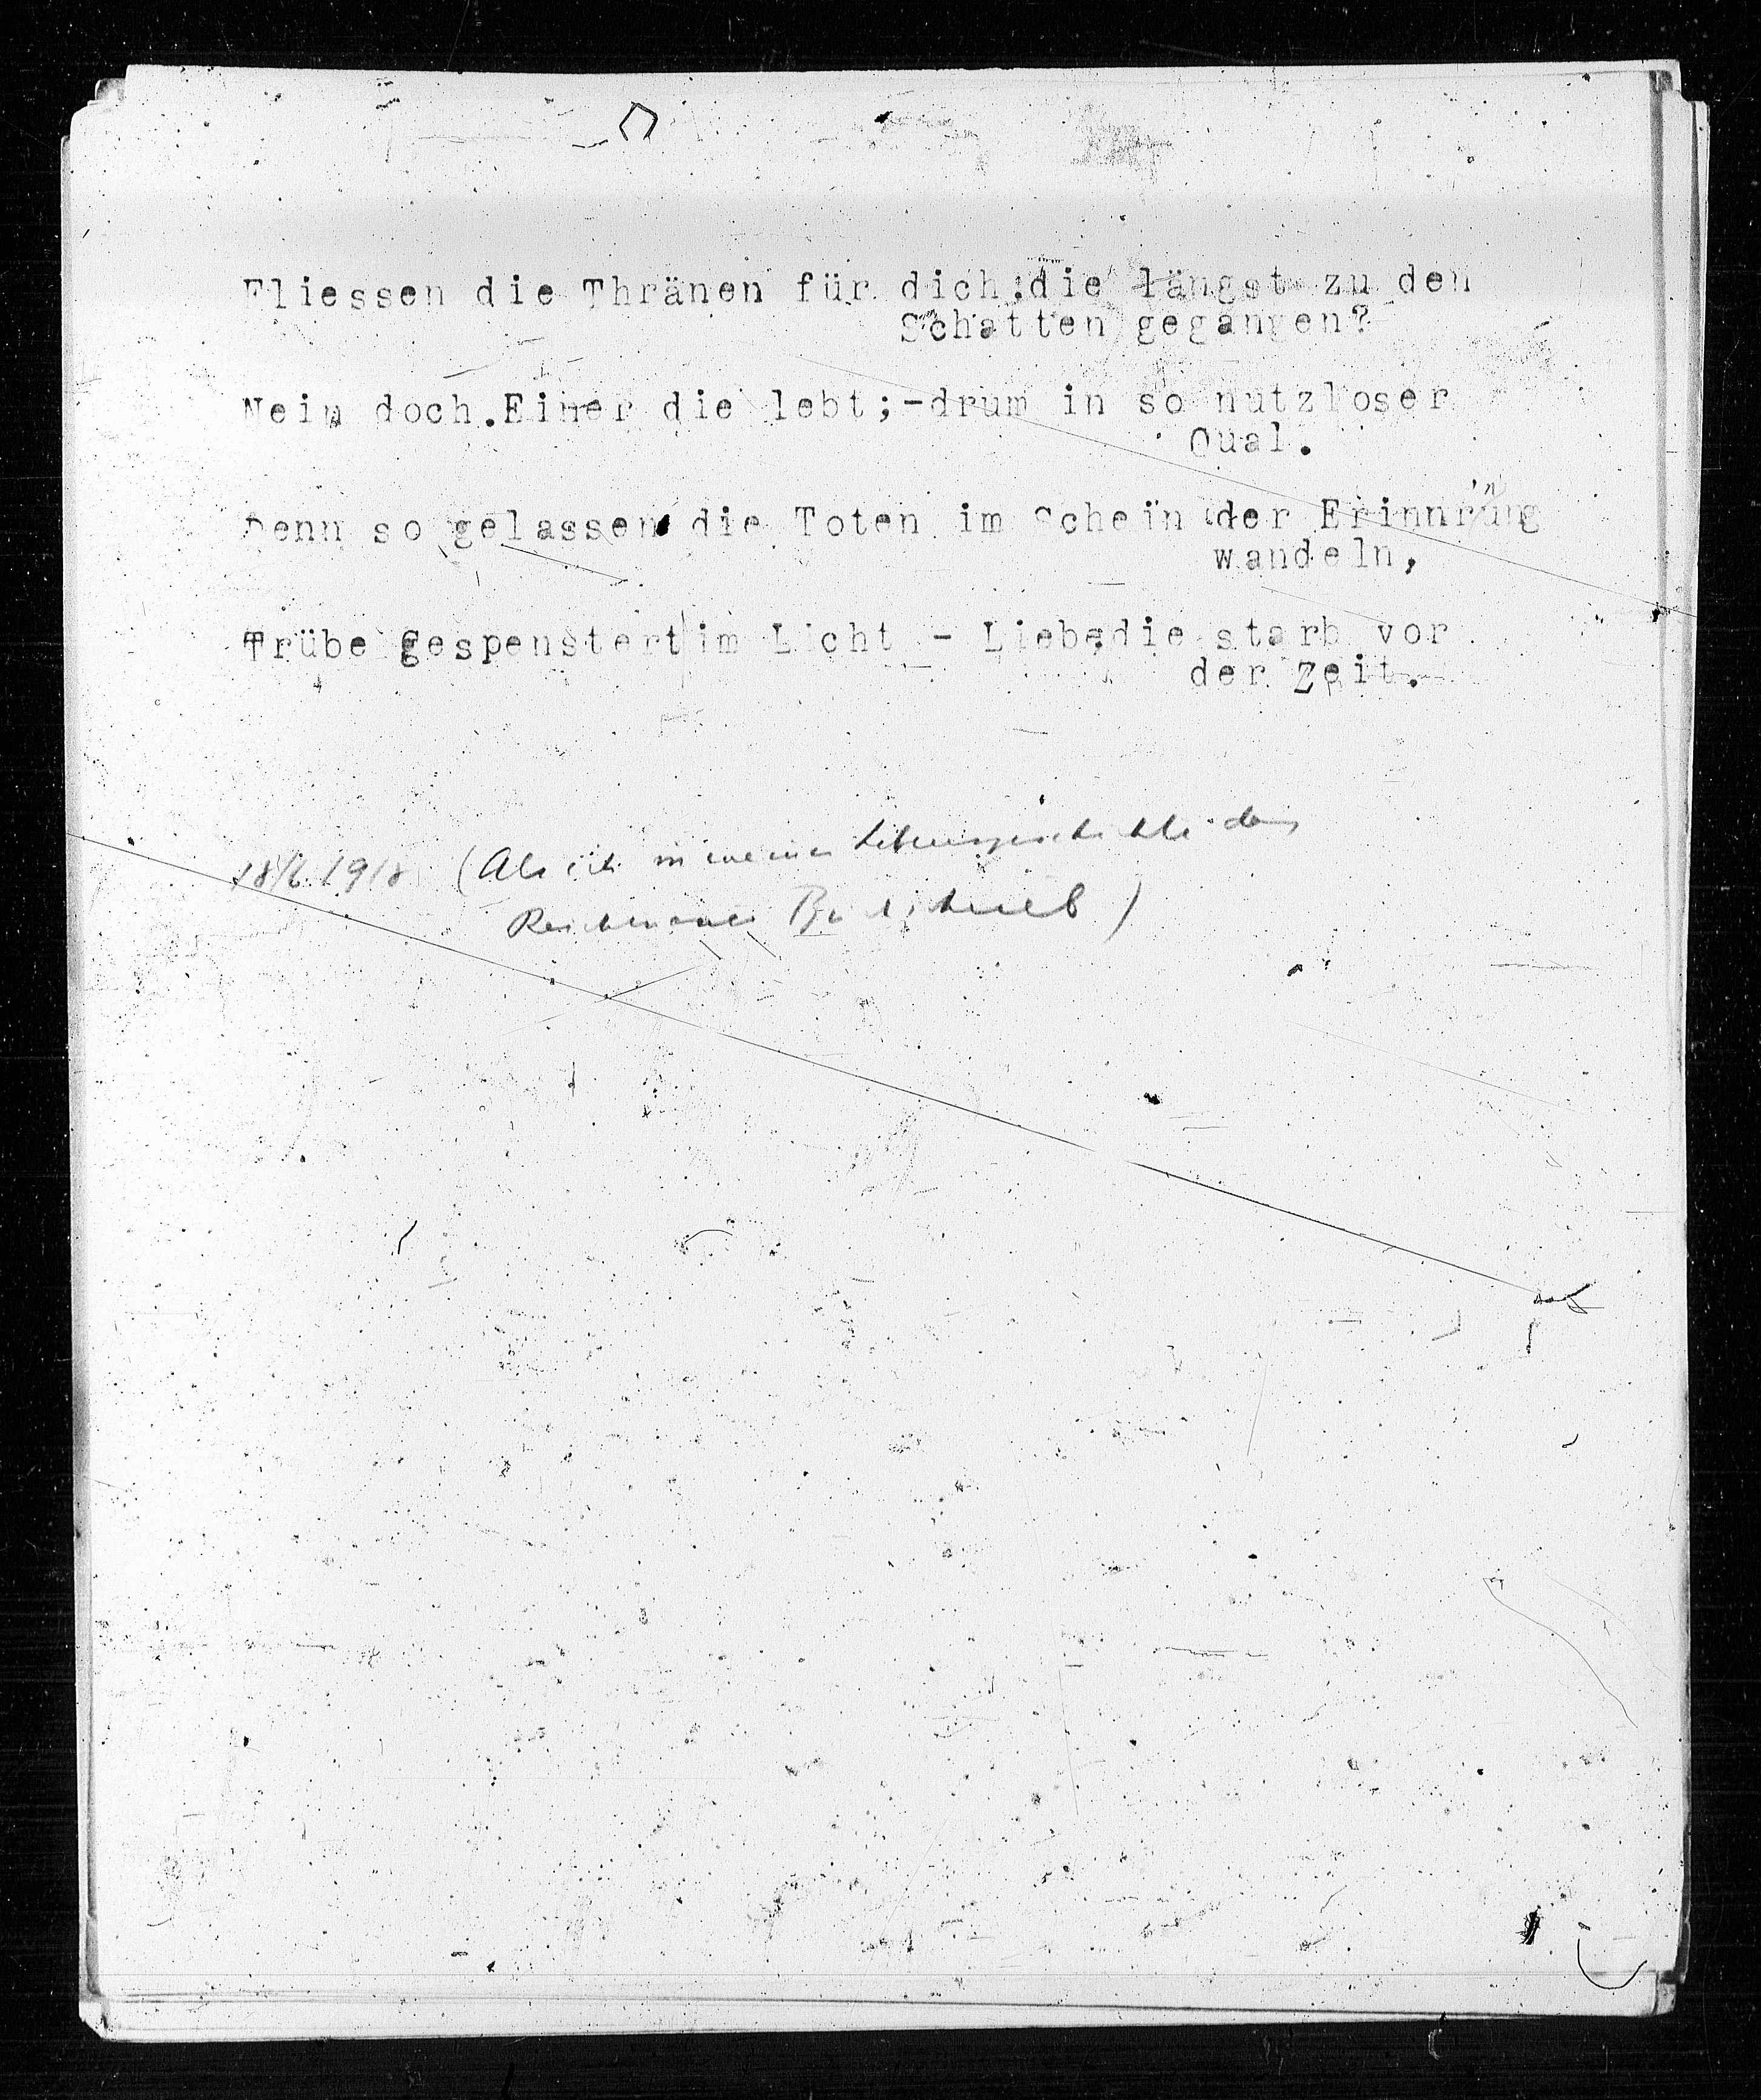 Fliessen die Thränen für dich,die längst zu den
Schatten gegangen?
Nein doch.Einer die lebt;-drum in so nutzloser
Qual.
Denn so gelassen die Toten im Schein der Erinnrung
wandeln,
Trübe gespenstert im Licht - Liebe,die starb vor
der Zeit.
18/6 1918 (Als ich in meiner Lebensgeschichte das
Reichenauer schrieb)